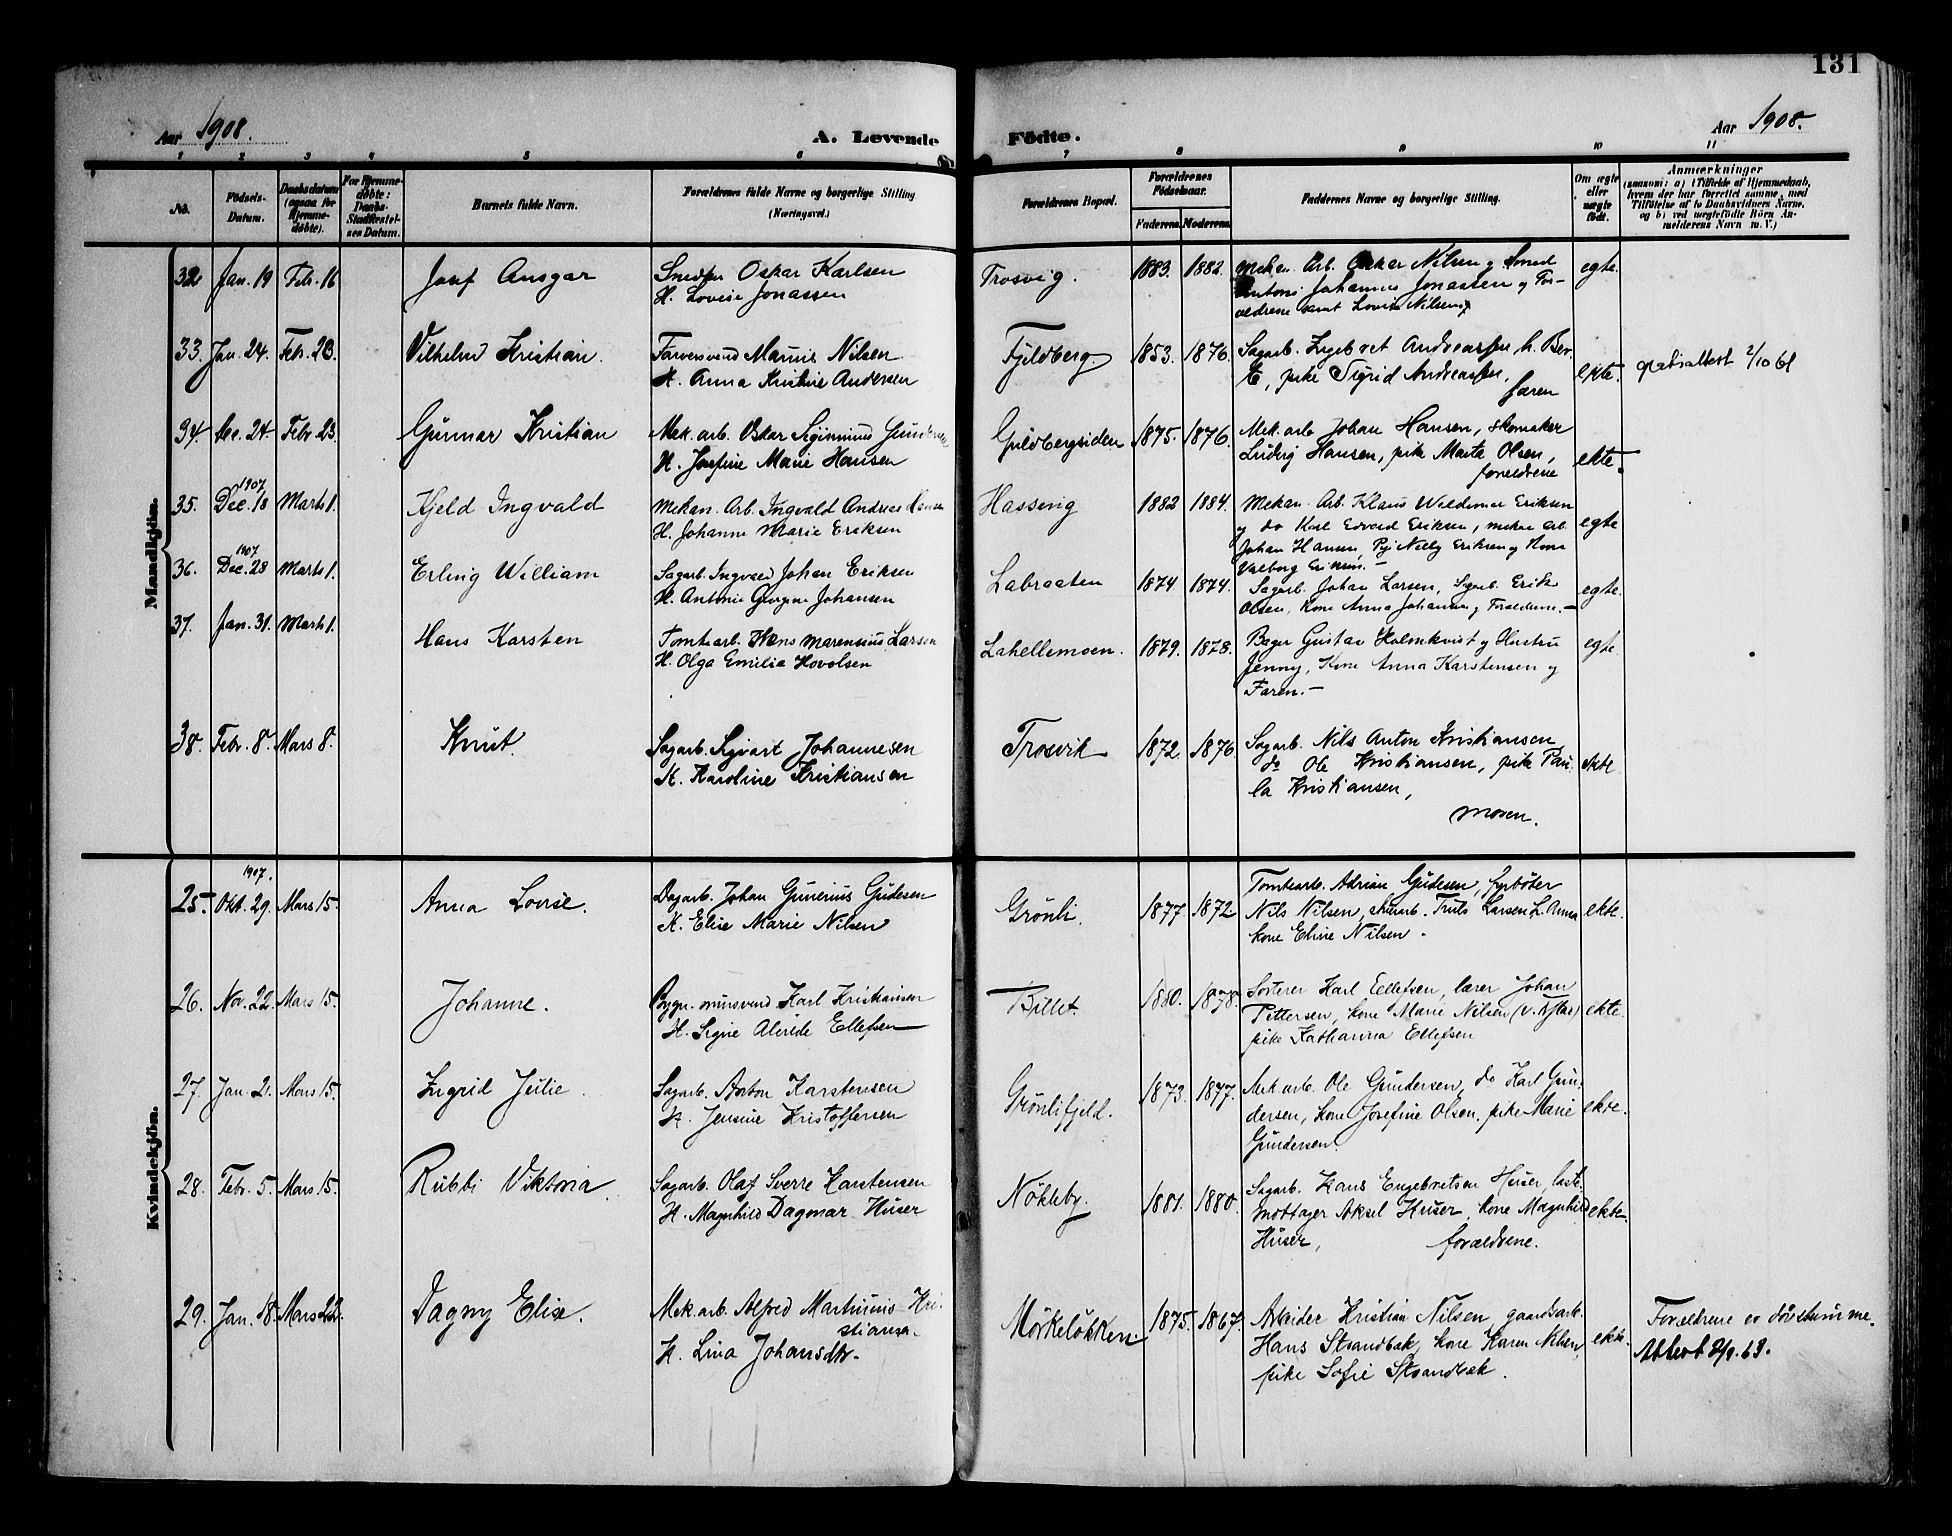 131
Aar 1908.
A. Levende
Födte.
Aar 1908.
1 2 3 4 5 6 7 8 9 10 11
No.
Födsels-Datum.
Daabsdatum (ogsaa for Hjemme-döbte).
For Hjemme-döbte: Daabs-Stadfæstel-ses Datum.
Barnets fulde Navn.
Forældrenes fulde Navne og borgerlige Stilling (Næringsvei.)
Forældrenes Bopæl.
Forældrenes Födselsaar.
Faderens. Moderens.
Faddernes Navne og borgerlige Stilling.
Om ægte eller uægte födt.
Anmærkninger
(saasom: a) i Tilfælde af Hjemmedaab, hvem der har forrettet samme, med Tilföielse af to Daabsvidners Navne, og b) ved uægtefödte Börn An-melderens Navn m. V.)
Mandkjön.
32 Jan. 19 Febr. 16 Josef Ansgar
Snedker Oskar Karlsen
H. Lovise Jonassen
Trosvig. 1883. 1882.
Mekan. Arb. Oskar Nilsen og Smed
Antoni Johannes Jonassen og For-
ældrene samt Lovise Nilsen
egte.
33. Jan. 24. Febr. 23. Vilhelm Kristian.
Farversvend Marius Nilsen
H. Anna Kristine Andersen
Fjeldberg. 1853. 1876.
Sagarb. Ingebret Andreassen, h. Ber-
te, pike Sigrid Andreassen,
faren
ekte.
2/10 61
34. Dec. 24. Febr. 23. Gunnar Kristian
Mek. arb. Oskar Sigimund Gundersen
H. Josefine Marie Hansen
Guldbergsiden 1875. 1876.
Mek. arb. Johan Hansen, skomaker
Ludvig Hansen, pike Marta Olsen,
forældrene
ekte.
35. 1907 Dec. 18 Marts 1. Kjeld Ingvald
Mekan. Arb. Ingvald Andreas Hansen
H. Johanne Marie Eriksen
Hassing 1882 1884.
Mekan. Arb. Klaus Waldemar Eriksen
og do Karl Edvard Eriksen, mekan arb.
Johan Hansen, Pige Nelly Eriksen og Kone
Valborg Eriksen.-
egte
36. 1907 Dec. 28 Marts 1. Erling William
Sagarb. Ingvald Johan Eriksen
H. Antonie Georgine Johansen
Labraaten 1874 1874.
Sagarb. Johan Larsen, Sagarb. Erik
Olsen, Kone Anna Johansen og Forældrene.-
egte.
37. Jan. 31. Marts 1. Hans Karsten
Tomtearb. Hans Marensius Larsen
H. Olga Emilia Hovolsen
Lahellemoen. 1879. 1878.
Bager Gustav Holmkvist og Hustru
Jenny, Kone Anna Karstensen og
Faren.-
egte.
38. Febr. 8. Mars 8. Knut.
Sagarb. Sigvart Johannesen
K. Karoline Kristiansen
Trosvik 1872 1876
Sagarb. Nils Anton Kristiansen
do Ole Kristiansen, pike Pau-
la Kristiansen,
moren.
ekte
Kvindekjön.
25. 1907. Okt. 29. Mars 15. Anna Lovise.
Dagarb. Johan Gunerius Gudesen
K. Elise Marie Nilsen
Grönli. 1877. 1872
Tomtearb. Adrian Gudesen, fyrböter
Nils Nilsen, skurarb. Truls Larsen h. Anna
kone Eline Nilsen.
ekte.
26. Nov. 22. Mars 15. Johanne.
Bygn. mursvend Karl Kristiansen
H. Signe Alvilde Ellefsen
Billet. 1880. 1878.
Sorterer Karl Ellefsen, lærer Johan
Pettersen, kone Marie Nilsen
pike Kathanna Ellefsen
ekte.
27. Jan. 21. Mars 15. Ingrid Julie.
Sagarb. Anton Karstensen
K. Jensine Kristoffersen
Grönlifjeld. 1873. 1877.
Mek arb. Ole Gundersen, do Karl Gun-
dersen, kone Josefine Olsen, pike Marie
Gundersen.
ekte.
28. Febr. 5. Mars 15. Rubbi Viktoria.
Sagarb. Olaf Sverre Karstensen
H. Magnhild Dagmar Huser
Nökleby. 1881. 1880.
Sagarb. Hans Engebretsen Huser, laste-
mottager Aksel Huser, kone Magnhild
Huser, forældrene.
ekte.
29. Jan. 18. Mars 22. Dagny Elise.
Mek. arb. Alfred Martinius Kri-
stiansen.
H. Lina Johansdtr.
Mörkelökken 1875. 1867.
Arbeider Kristian Nilsen, gaardsarb.
Hans Strandbæk, kone Karen Nilsen,
pike Sofie Strandbæk.
ekte.
Forældrene er dövstumme.
Attest 2/9.63.